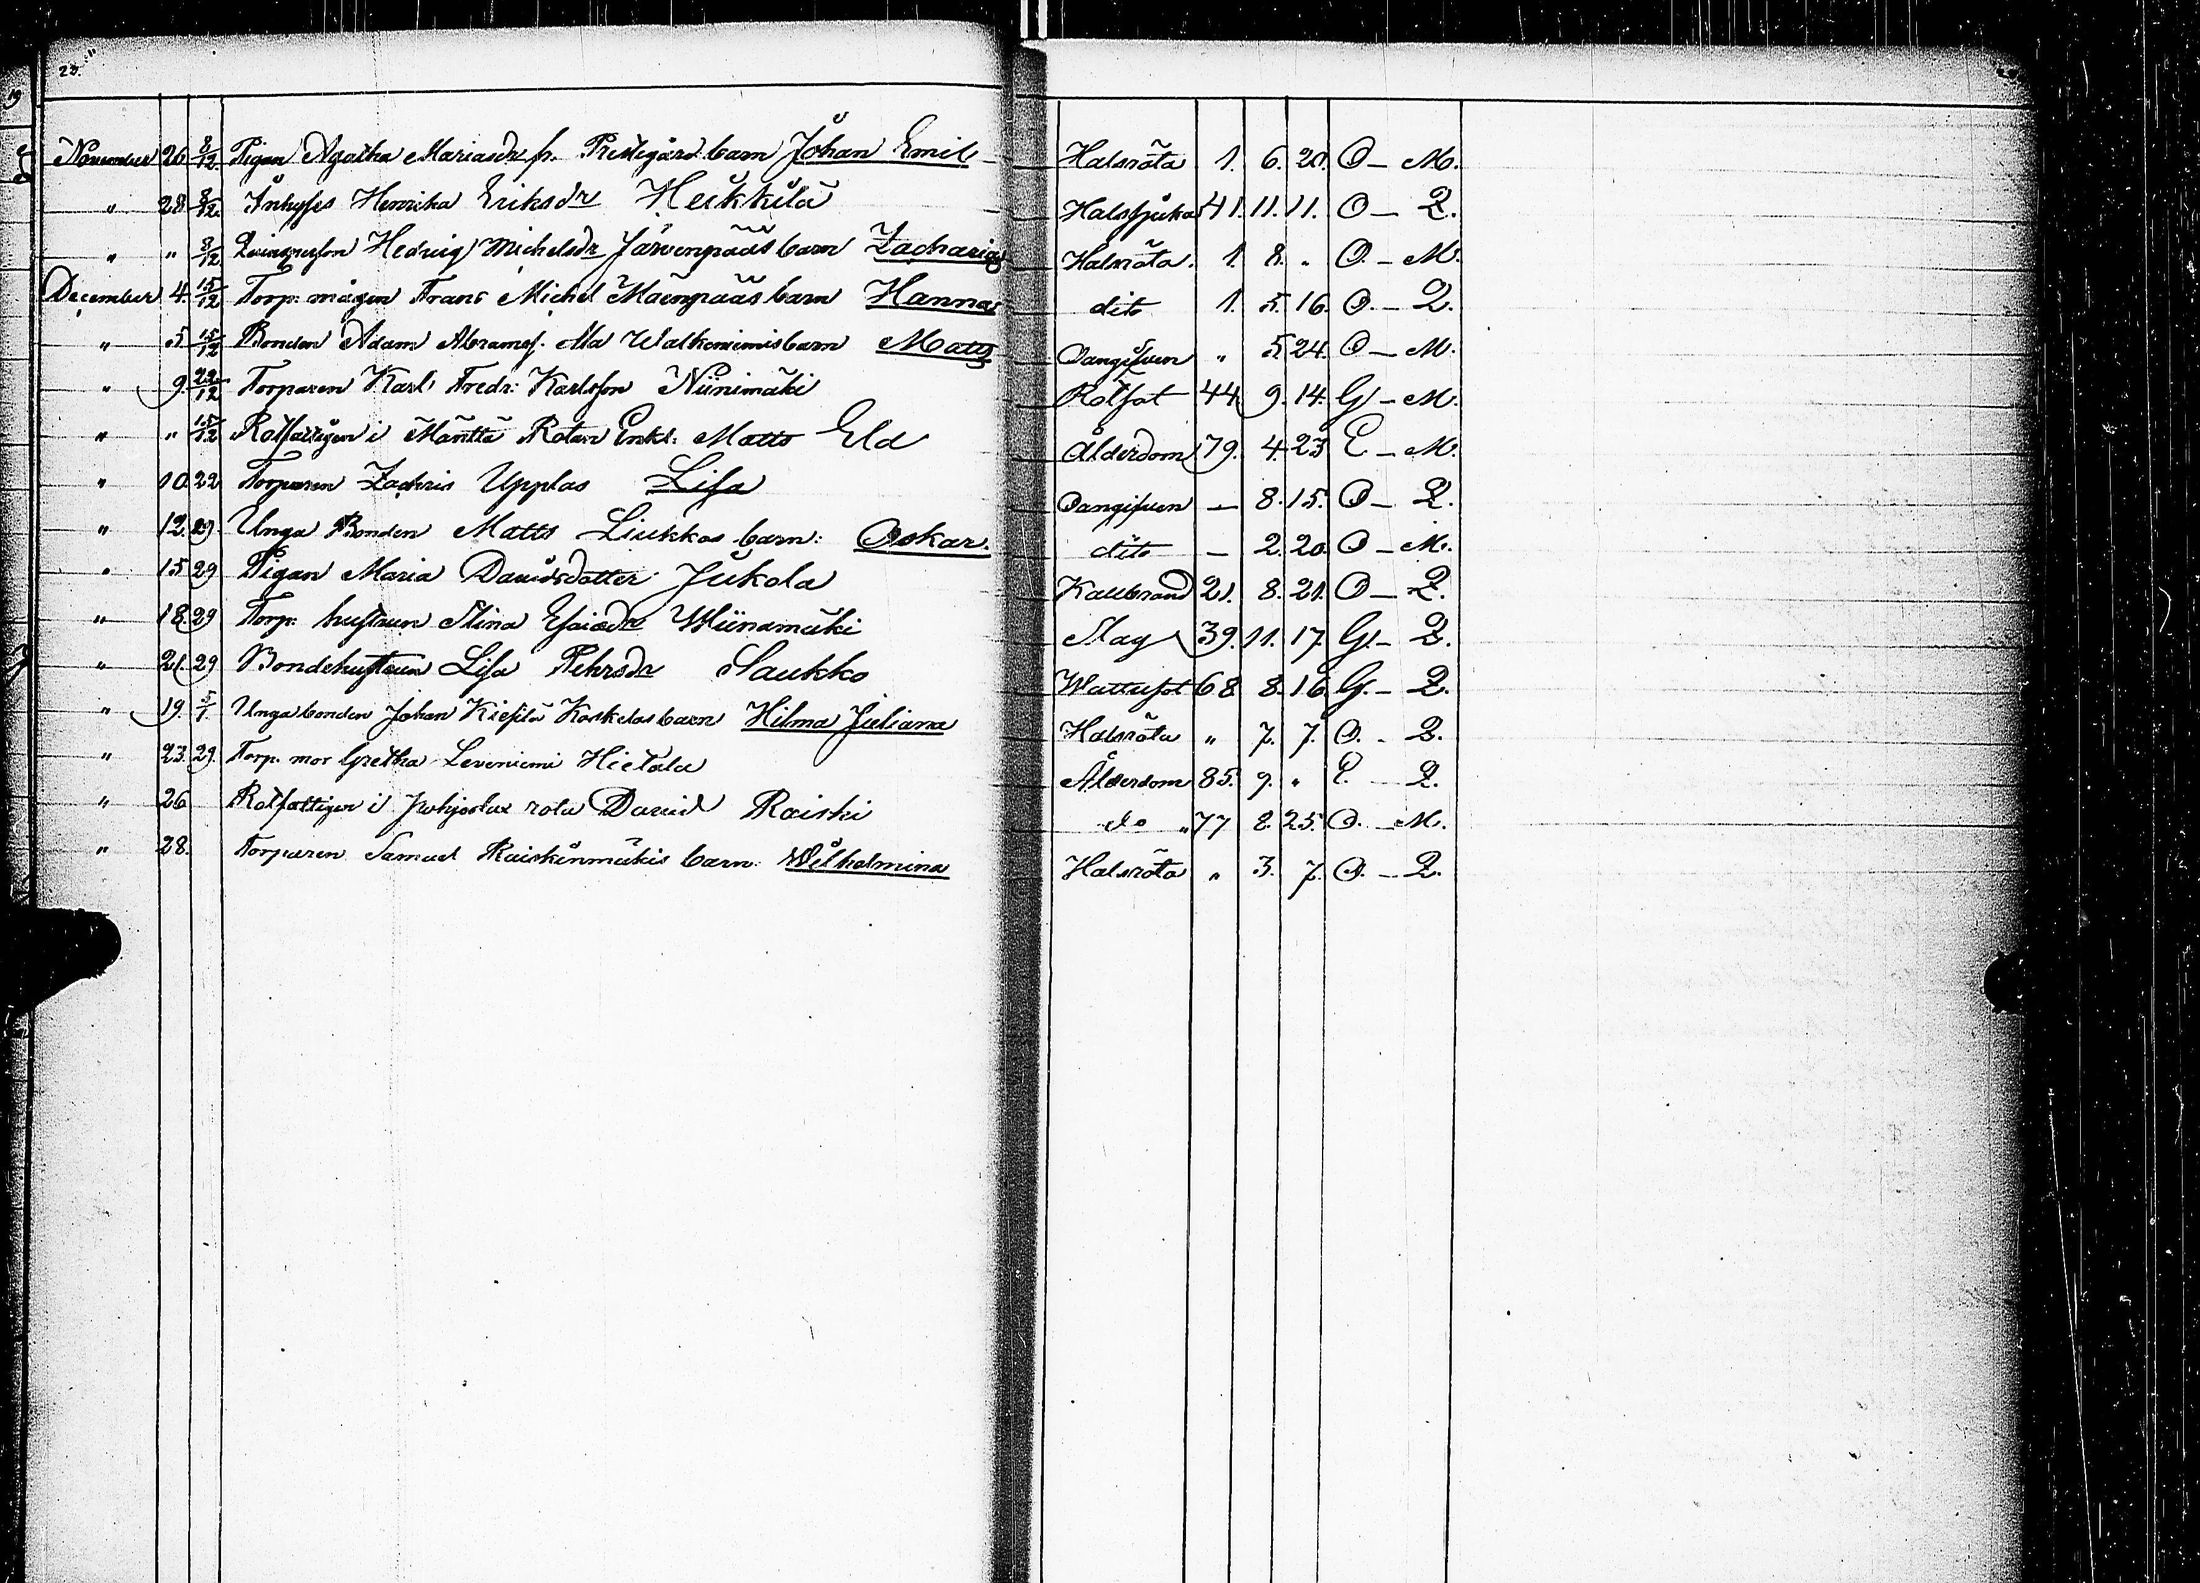 23.
November 26 3/12 Pigan Agatha Mariasdr fr. Prestegård barn Johan Emil Halsröta 1. 6. 20. O - M.
" 28 3/12 Inhyses Henrika Eriksdr Heikkilä Halssjuka 41. 11. 11. O - Q.
" " 3/12 Qvinsperson Hedvig Michelsdr Järvenpääs barn Zacharias Halsröta. 1. 8. " O. - M.
December 4. 15/12 Torp. mågen Frans Michel Mäenpääs barn Hanna dito 1. 5. 16. O. - Q.
" 5 15/12 Bonden Adam Abramss. Ala Walkeniemis barn Matts Oangifven " 5. 24. O - M.
" 9. 22/12 Torparen Karl Fredr: Karlsson Niinimäki Rötfot 44 9. 14. G - M.
" " 15/12 Rotfattigen i Mänttä Rotan Enkl. Matts Eld Ålderdom 79. 4 23 E - M.
" 10. 22 Torparen Zachris Upplas Lisa Oangifven — 8. 15. O - Q.
" 12. 29. Unga Bonden Matts Liukkos barn: Oskar. dito — 2. 20. O - M.
" 15 29 Pigan Maria Davidsdotter Jukola Kallbrand 21. 8. 21. O - Q.
" 18. 29 Torp. hustrun Stina Esaiedr Wiinamäki Slag 39. 11. 17. G. - Q.
" 21. 29 Bondehustrun Lisa Pehrsdr Saukko Wattusot 68 8. 16. G. - Q.
" 19. 5/1. Unga bonden Johan Kiesilä Koskelas barn Hilma Juliana Halsröta " 7. 7. O. - Q.
" 23. 29. Torp. mor Gretha Leveniemi Hietala Ålderdom 85. 9. " E. - Q.
" 26 Rotfattigen i Pohjoslax rota David Raiski do " 77 8. 25. O. - M.
" 28. Torparen Samuel Raiskinmäkis barn: Wilhelmina Halsröta " 3. 7. O. - Q.